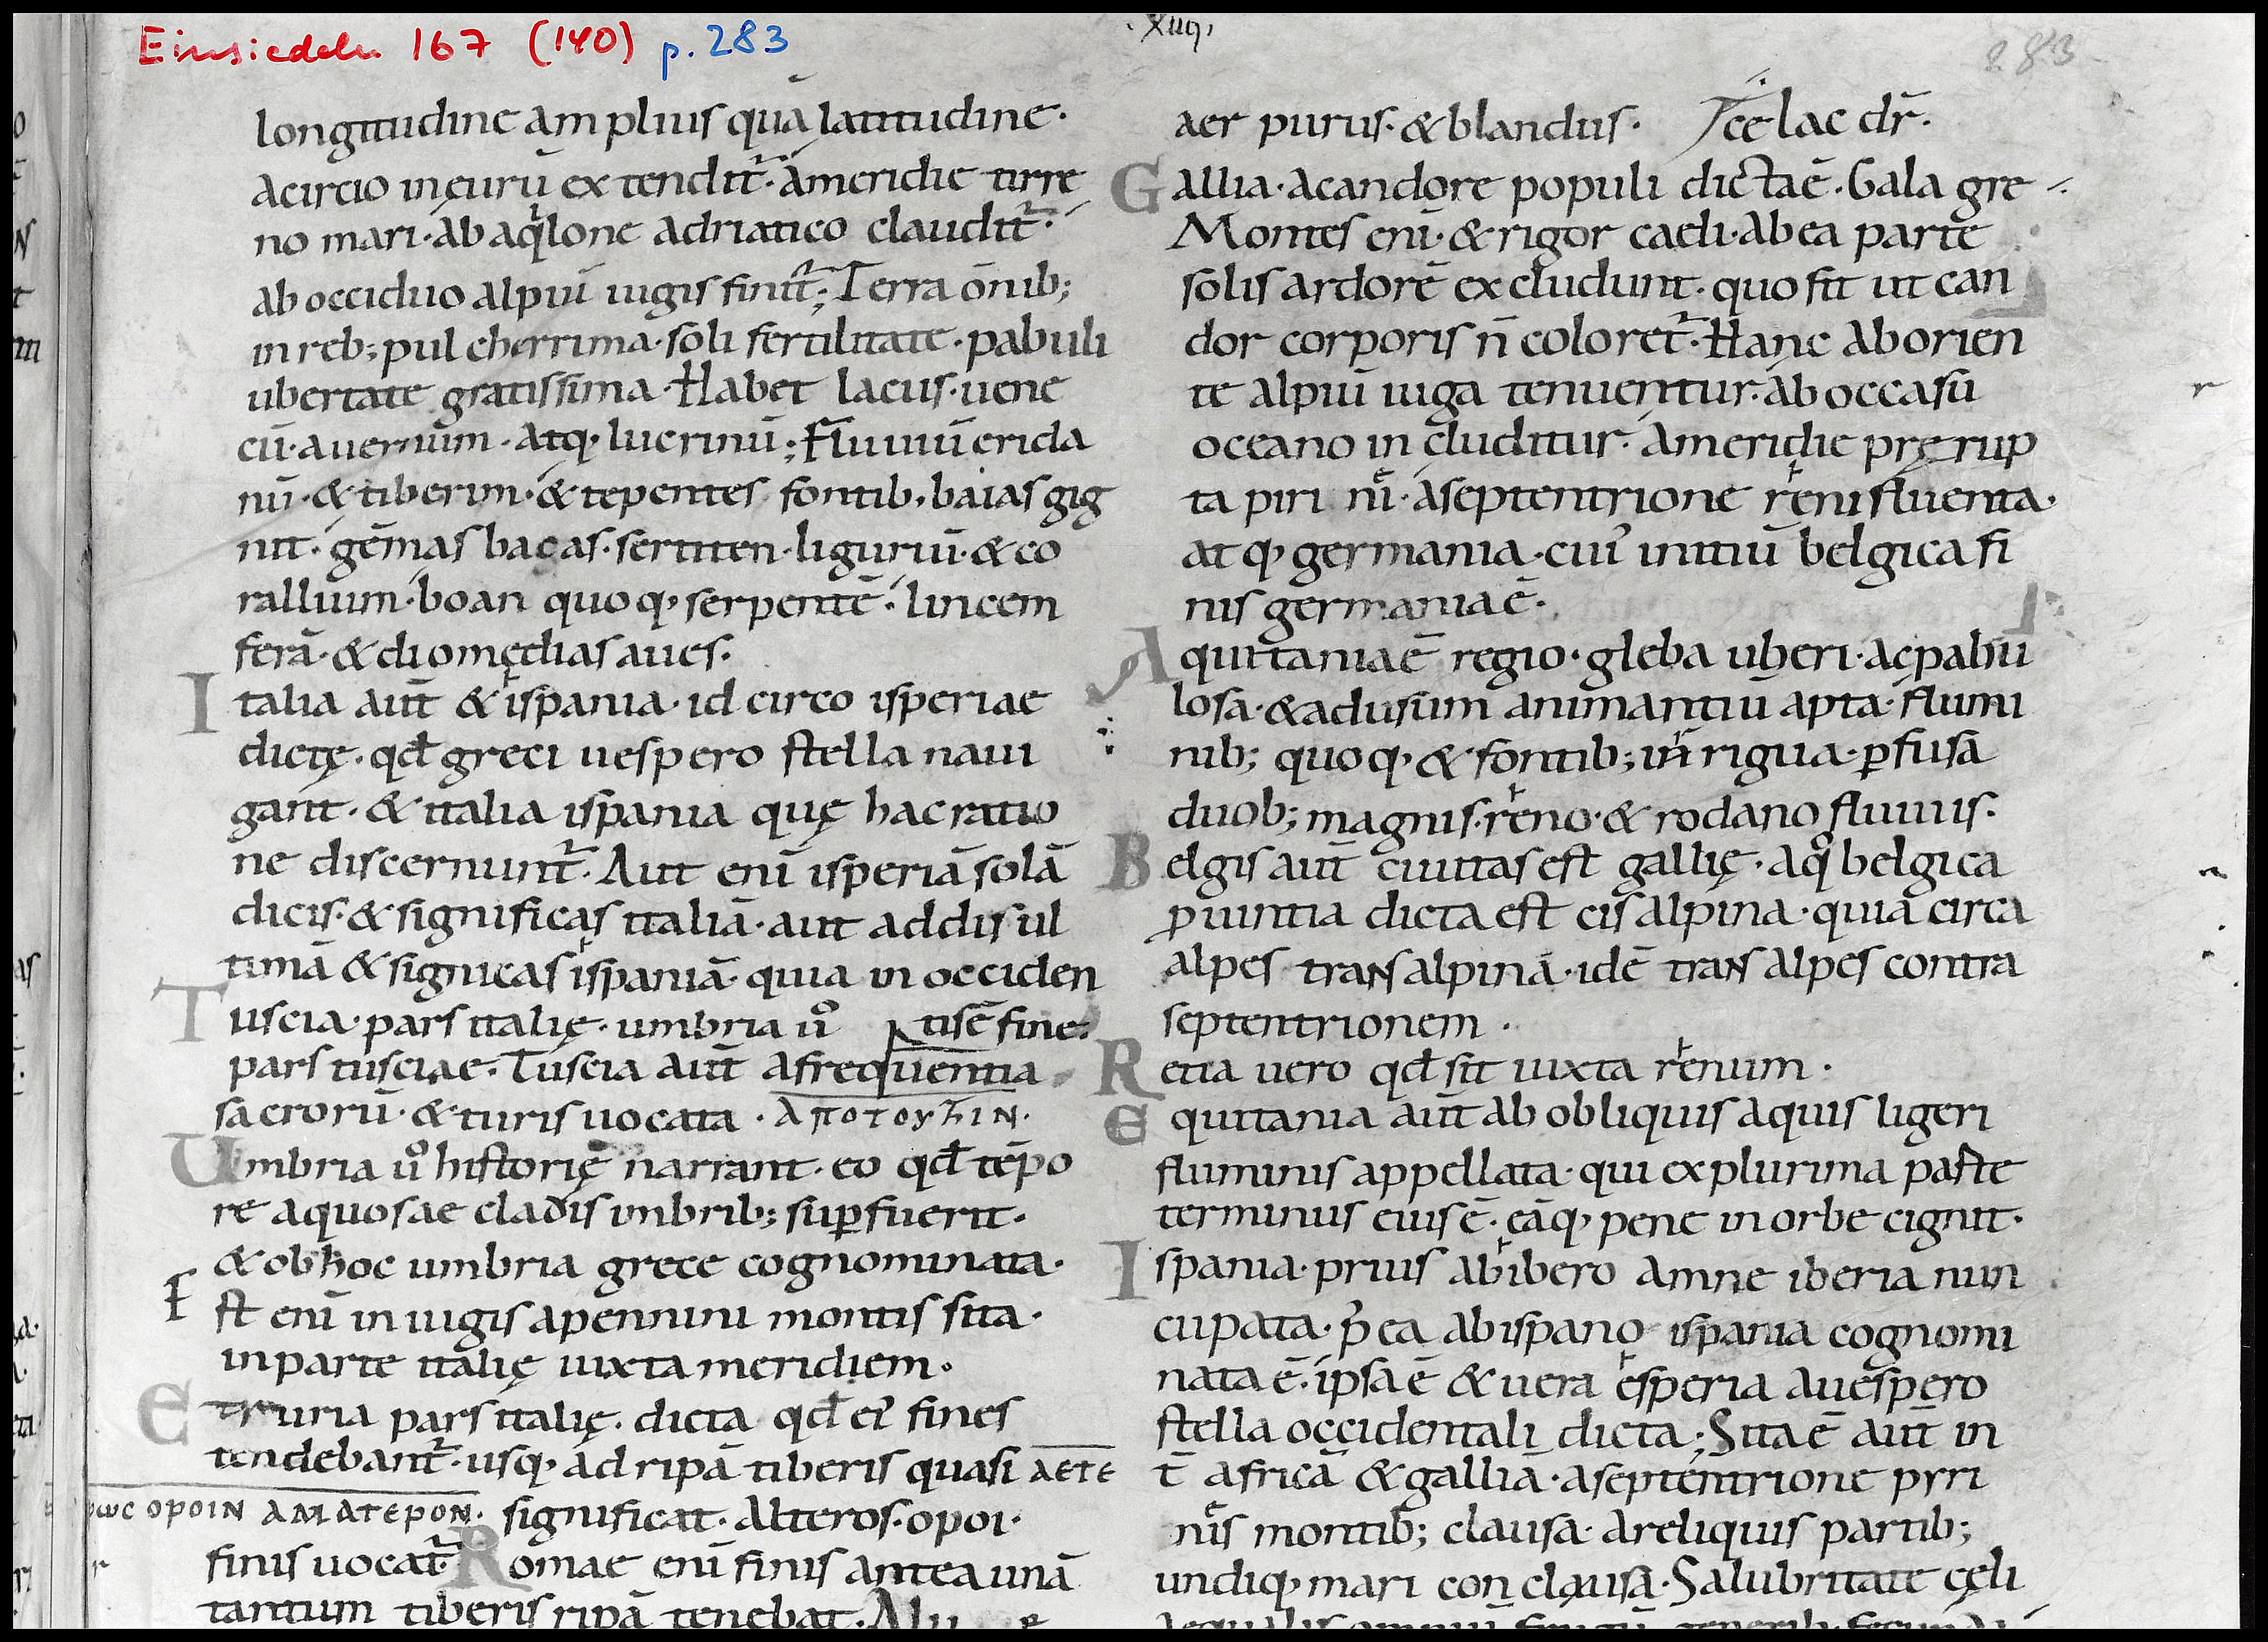 Einsiedeln 167 (140) p. 283
·XIIII,
283
longitudine amplius quā latitudine·
acircio ineurū extendit᷑· ameridie tirre
no mari· ab aqͥlone adriatico claudit᷑·
ab occiduo alpiū iugis finit᷑; Terra ōnib;
in reb; pulcherrima· soli fertilitate· pabuli
ubertate gratissima· Habet lacus· uene
cū· auernum· atq· lucrinū; Fluuiū erida
nū· & tiberim· & tepentes fontib· baias gig
nit· gēmas bacas· sertiten· liguriū· & co
rallium· boan quoq· serpentē· lincem
ferā· & diomędias aues·
Italia aūt & ispania· id circo isperiae
dictę· qđ greci uespero stella naui
gant· & italia ispania quę hac ratio
ne discernunt᷑· Aut enī isperiā solā
dicis· & significas italiā· aut addis ul
timā & signicas ispaniā· quia in occiden
tis ē fine·
Tuscia· pars italię· umbria uͦ
pars tusciae· Tuscia aūt afrequentia
sacrorū· & turis uocata· ΑΠΟΤΟΥ
Umbria uͦ historię narrant· eo qđ tēpo
re aquosae cladis imbrib; suꝑfuerit·
& ob hoc umbria grece cognominata·
Est enī in iugis apennini montis sita·
inparte italię iuxta meridiem·
Etruria pars italię· dicta qđ ei᾽ fines
tendebant᷑· usq· ad ripā tiberis quasi ΑΕΤΕ
ρωϲ ΟΡΟΙΝ ΑΜΑΤΕΡΟΝ· significat· alteros· opoi·
finis uocat᷑· Romae enī finis antea unā
tantum tiberis ripā tenebat·
aer purus· & blandus·
ce lac dr̄·
Gallia· acandore populi dicta ē· Gala gre
Montes enī· & rigor caeli· ab ea parte
solis ardorē excludunt· quo fit ut can
dor corporis n̄ coloret᷑· Hanc aborien
te alpiū iuga tenuentur· ab occasū
oceano includitur· ameridie pręrup
ta piri nͤi· aseptentrione reni fluenta·
atq· germania· cui᾽ initiū belgica fi
nis germania ē·
Aquitania ē regio· gleba uberi· ac pabu
losa· & adusum animantiū apta· flumi
nib; quoq· & fontib; inrigua· ꝑfusa
duob; magnis· reno· & rodano fluuiis·
Belgis aūt ciuitas est gallię· aqͦ belgica
ꝓuintia dicta est cisalpina· quia circa
alpes transalpinā· idē trans alpes contra
septentrionem·
Retia uero qđ sit iuxta renum·
Equitania aūt ab obliquis aquis ligeri
fluminis appellata· qui explurima parte
terminus eius ē· eāq· pene inorbe cignit·
Ispania· prius ab ibero amne iberia nun
cupata· p̄ ea abispano ispania cognomi
nata ē· ipsa ē & uera esperia auespero
stella occidentali dicta; Sita ē aūt in
t̄ africā & galliā· aseptentrione pyri
nͤis montib; clausa· areliquis partib;
undiq· mari conclausa· Salubritate cęli